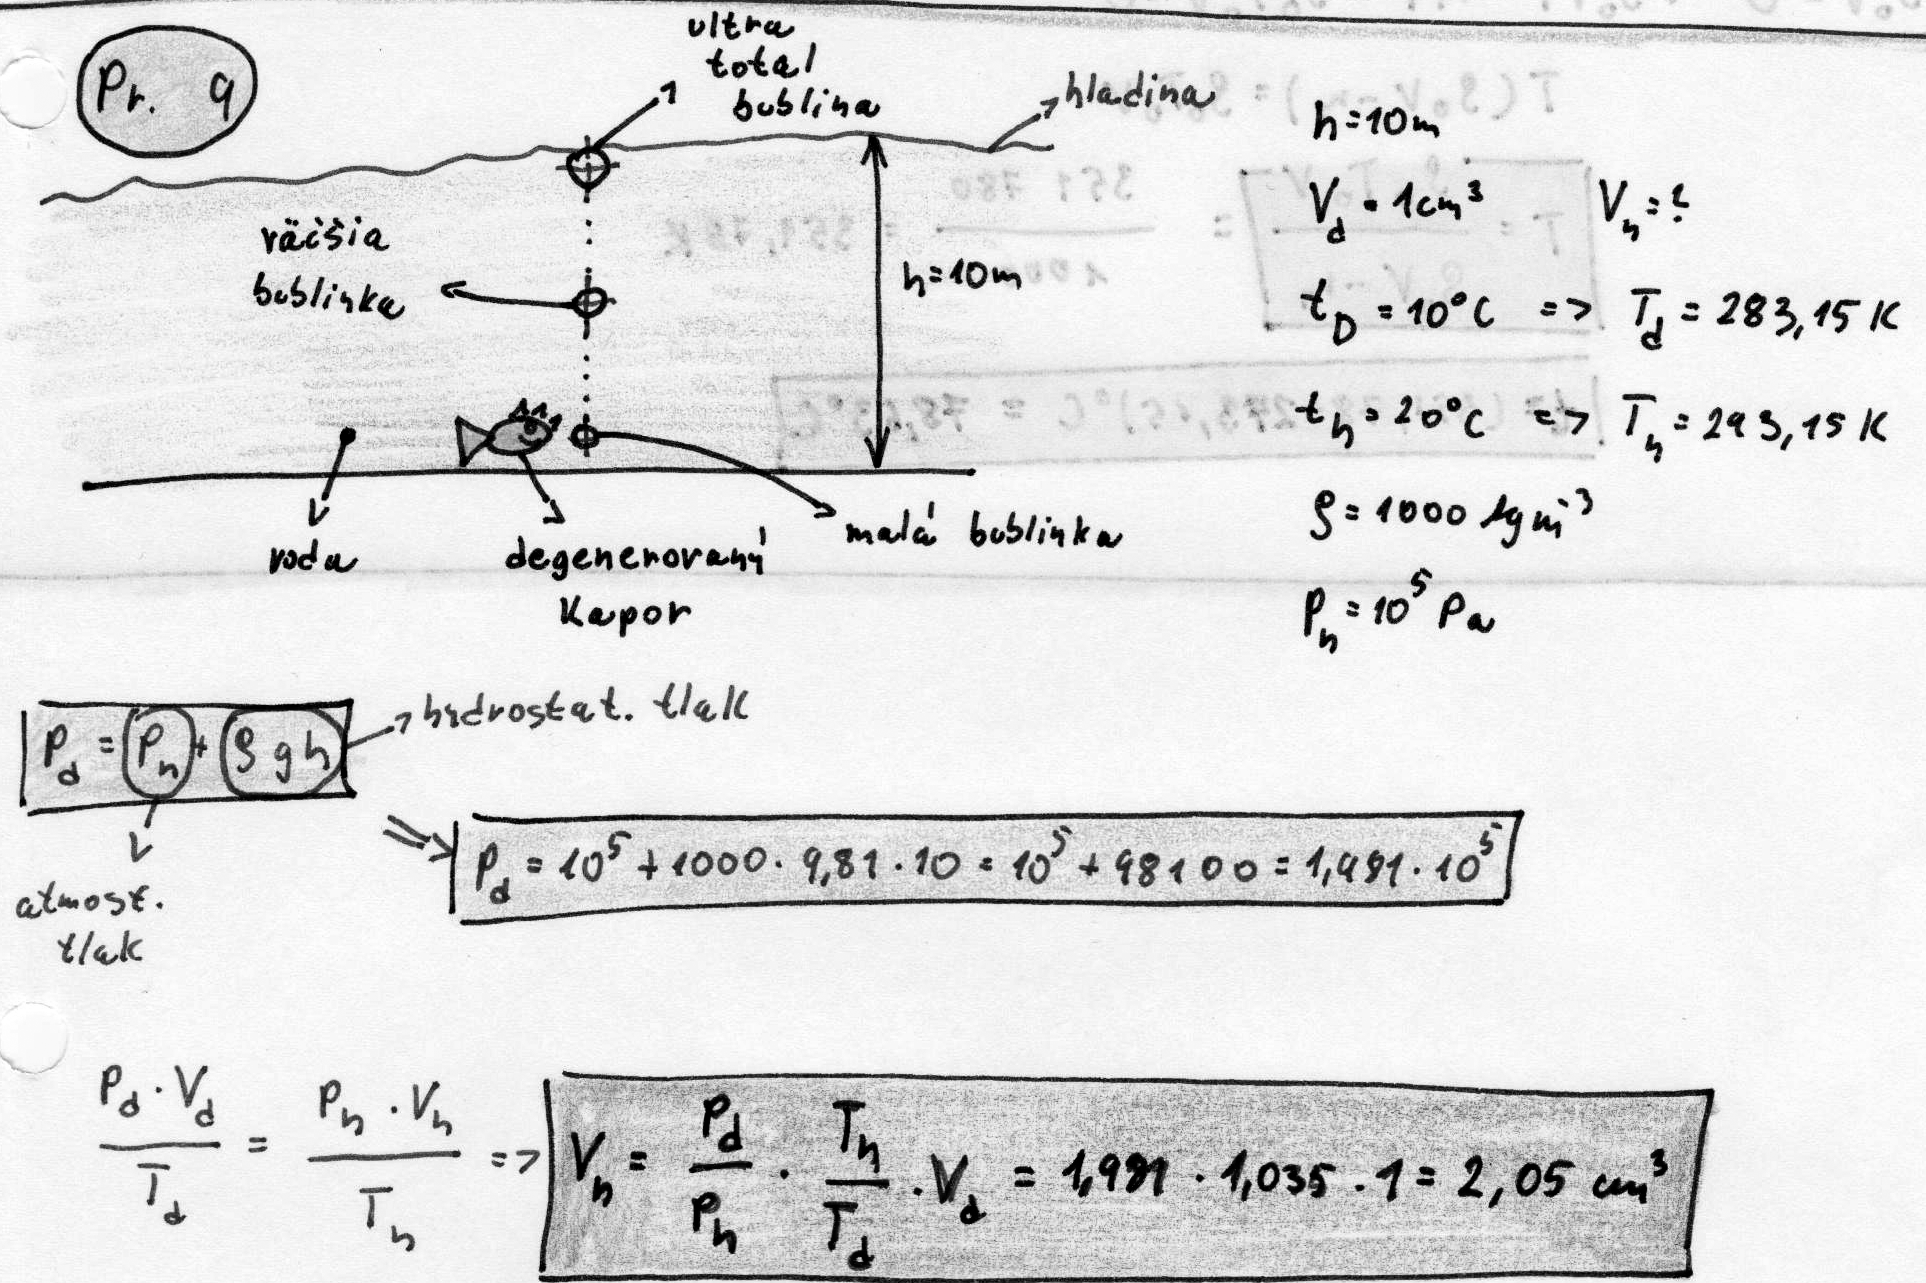 Pr. 9
ultra
total
bublina
hladina
väčšia
bublinka
h=10m
voda
degenerovaný
kapor
malá bublinka
h=10m
V_d = 1cm³ V_h = ?
t_D = 10°C => T_d = 283,15 K
t_h = 20°C => T_h = 293,15 K
ρ = 1000 kgm⁻³
P_h = 10⁵ Pa
P_d = P_h + ρgh
hydrostat. tlak
atmosf.
tlak
=> P_d = 10⁵ + 1000 · 9,81 · 10 = 10⁵ + 98100 = 1,981 · 10⁵
P_d · V_d / T_d = P_h · V_h / T_h => V_h = P_d / P_h · T_h / T_d · V_d = 1,981 · 1,035 · 1 = 2,05 cm³